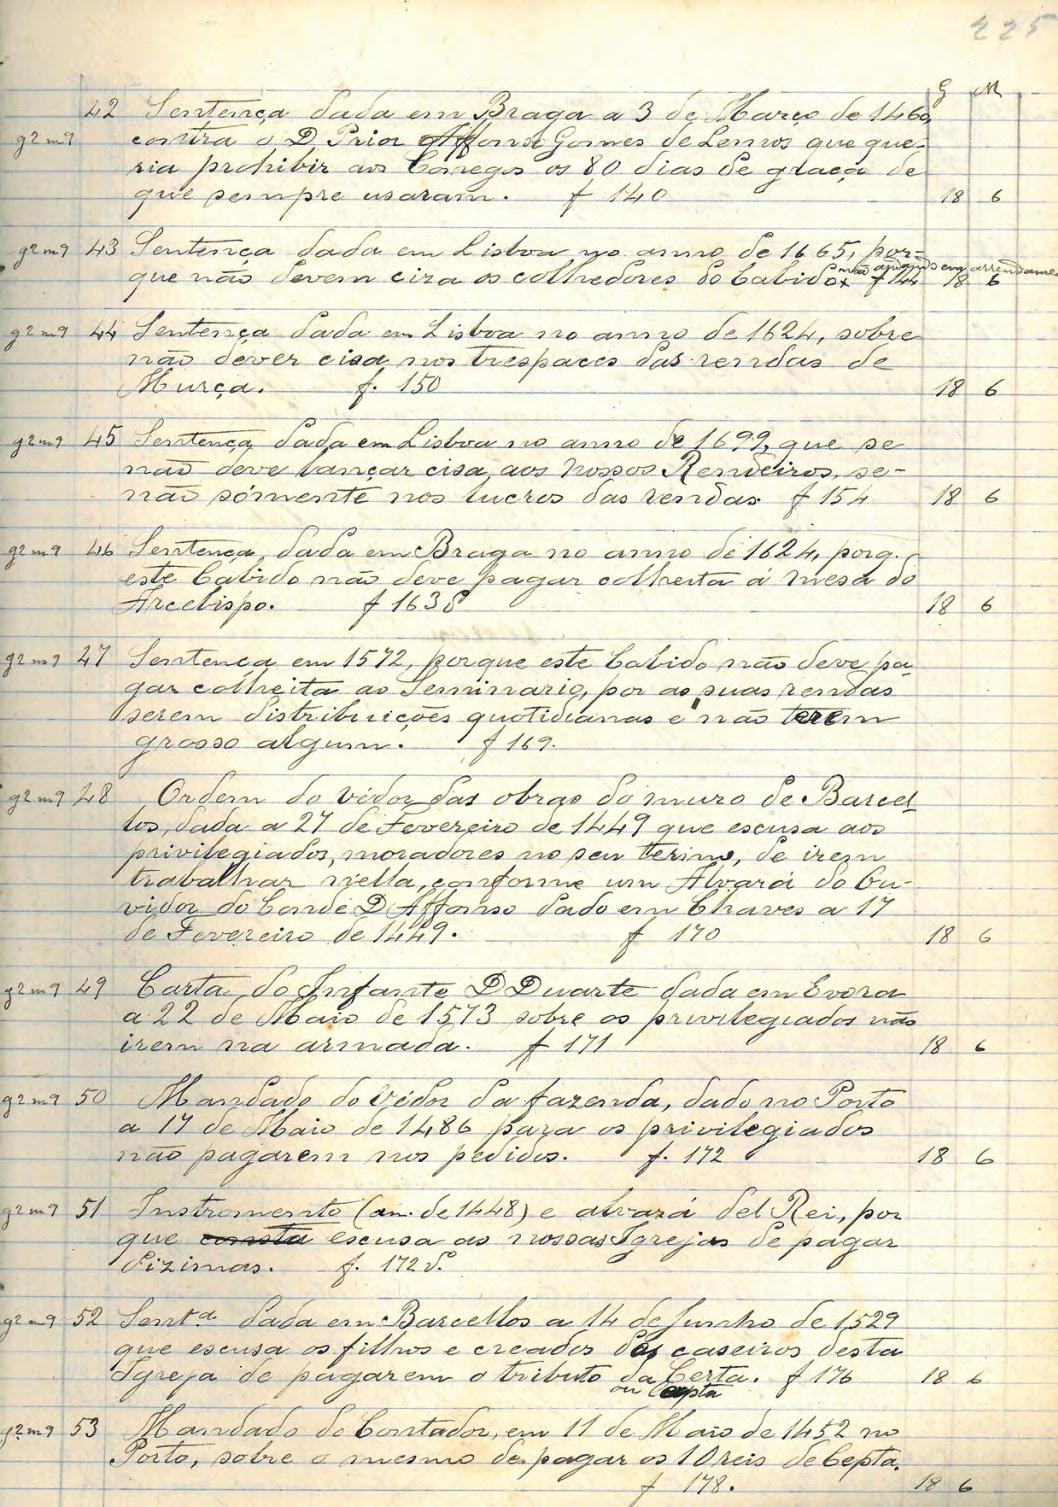 225
G M
42 Sentença dada em Braga a 3 de Março de 1460,
g2m9 contra o D. Prior Affonso Gomes de Lemos que que-
ria prohibir aos Conegos os 80 dias de graça de
que sempre usaram. f 140 18 6
g2m9 43 Sentença dada em Lisboa no anno de 1665, por-
que não devem ciza os colhedores do Cabido × f 144 18 6
não andando sem arrendamen
g2m9 44 Sentença dada em Lisboa no anno de 1624, sobre
não dever cisa nos trespaces das rendas de
Murça. f. 150 18 6
g2m9 45 Sentença dada em Lisboa no anno de 1699, que se
não deve lançar cisa aos nossos Rendeiros, se-
não sómente nos lucros das rendas. f 154 18 6
g2m9 46 Sentença, dada em Braga no anno de 1624, porq.
este Cabido não deve pagar colheita á mesa do
Arcebispo. f 163 18 6
g2m9 47 Sentença em 1572, porque este Cabido não deve pa-
gar colheita ao Seminario, por as suas rendas
serem distribuições quotidianas e não terem
grosso algum. f 169.
g2m9 48 Ordem do védor das obras do muro de Barcel-
los, dada a 27 de Fevereiro de 1449 que escusa aos
privilegiados, moradores no seu termo, de irem
trabalhar n'ella, conforme um Alvará do Ou-
vidor do Conde D Affonso dado em Chaves a 17
de Fevereiro de 1449. f 170 18 6
g2m9 49 Carta do Infante D Duarte dada em Evora
a 22 de Maio de 1573 sobre os privilegiados não
irem na armada. f 171 18 6
g2m9 50 Mandado do Védor da fazenda, dado no Porto
a 17 de Maio de 1486 para os privilegiados
não pagarem nos pedidos. f. 172 18 6
g2m9 51 Instromento (an. de 1448) e alvará del Rei, por
que consta escusa as nossas Igrejas de pagar
dizimas. f. 172
g2m9 52 Sentª dada em Barcellos a 14 de Junho de 1529
que escusa os filhos e creados dos caseiros desta
Igreja de pagarem o tributo da Certa. f 176 18 6
ou Cepta
g2m9 53 Mandado do Contador, em 11 de Maio de 1452 no
Porto, sobre o mesmo de pagar os 10 reis de Cepta.
f 178. 18 6